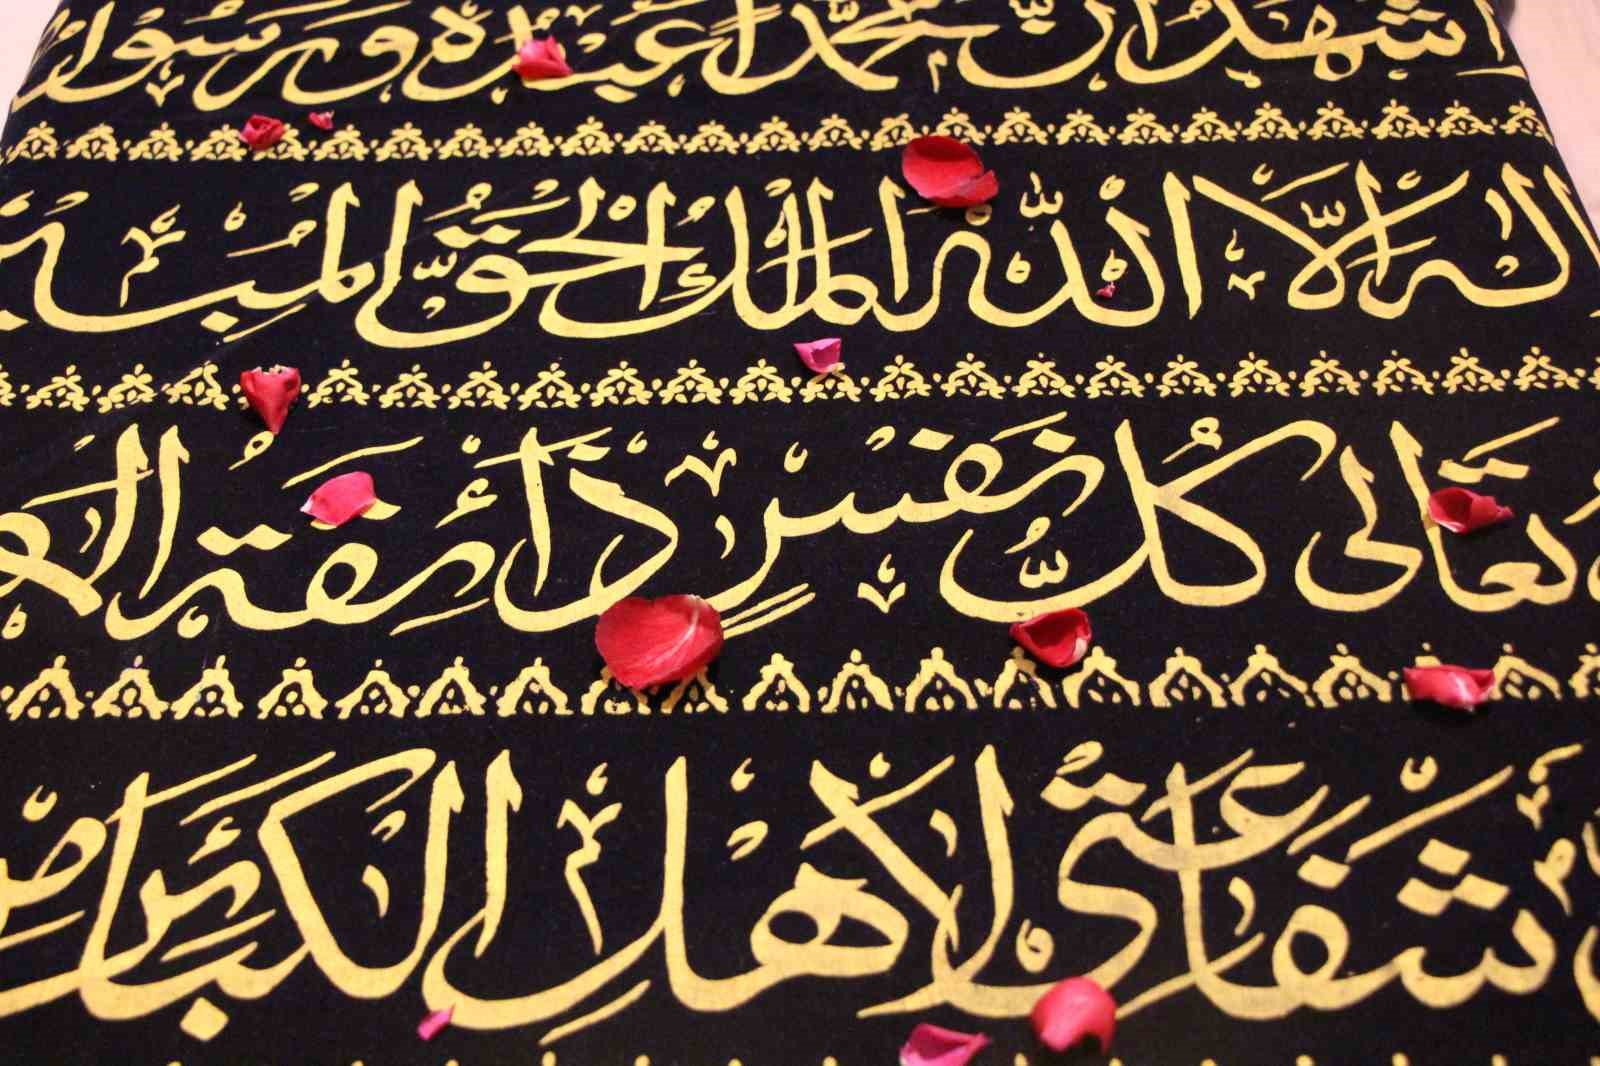 اَشْهَدُ اَنَّ مُحَمَّدًا عَبْدُهُ وَرَسُوْلُ
اِلٰهَ اِلَّا اللّٰهُ الْمَلِكُ الْحَقُّ الْمُبِيْنُ
تَعَالٰى كُلُّ نَفْسٍ ذَائِقَةُ
شَفَاعَتِىْ لِاَهْلِ الْكَبَائِرِ